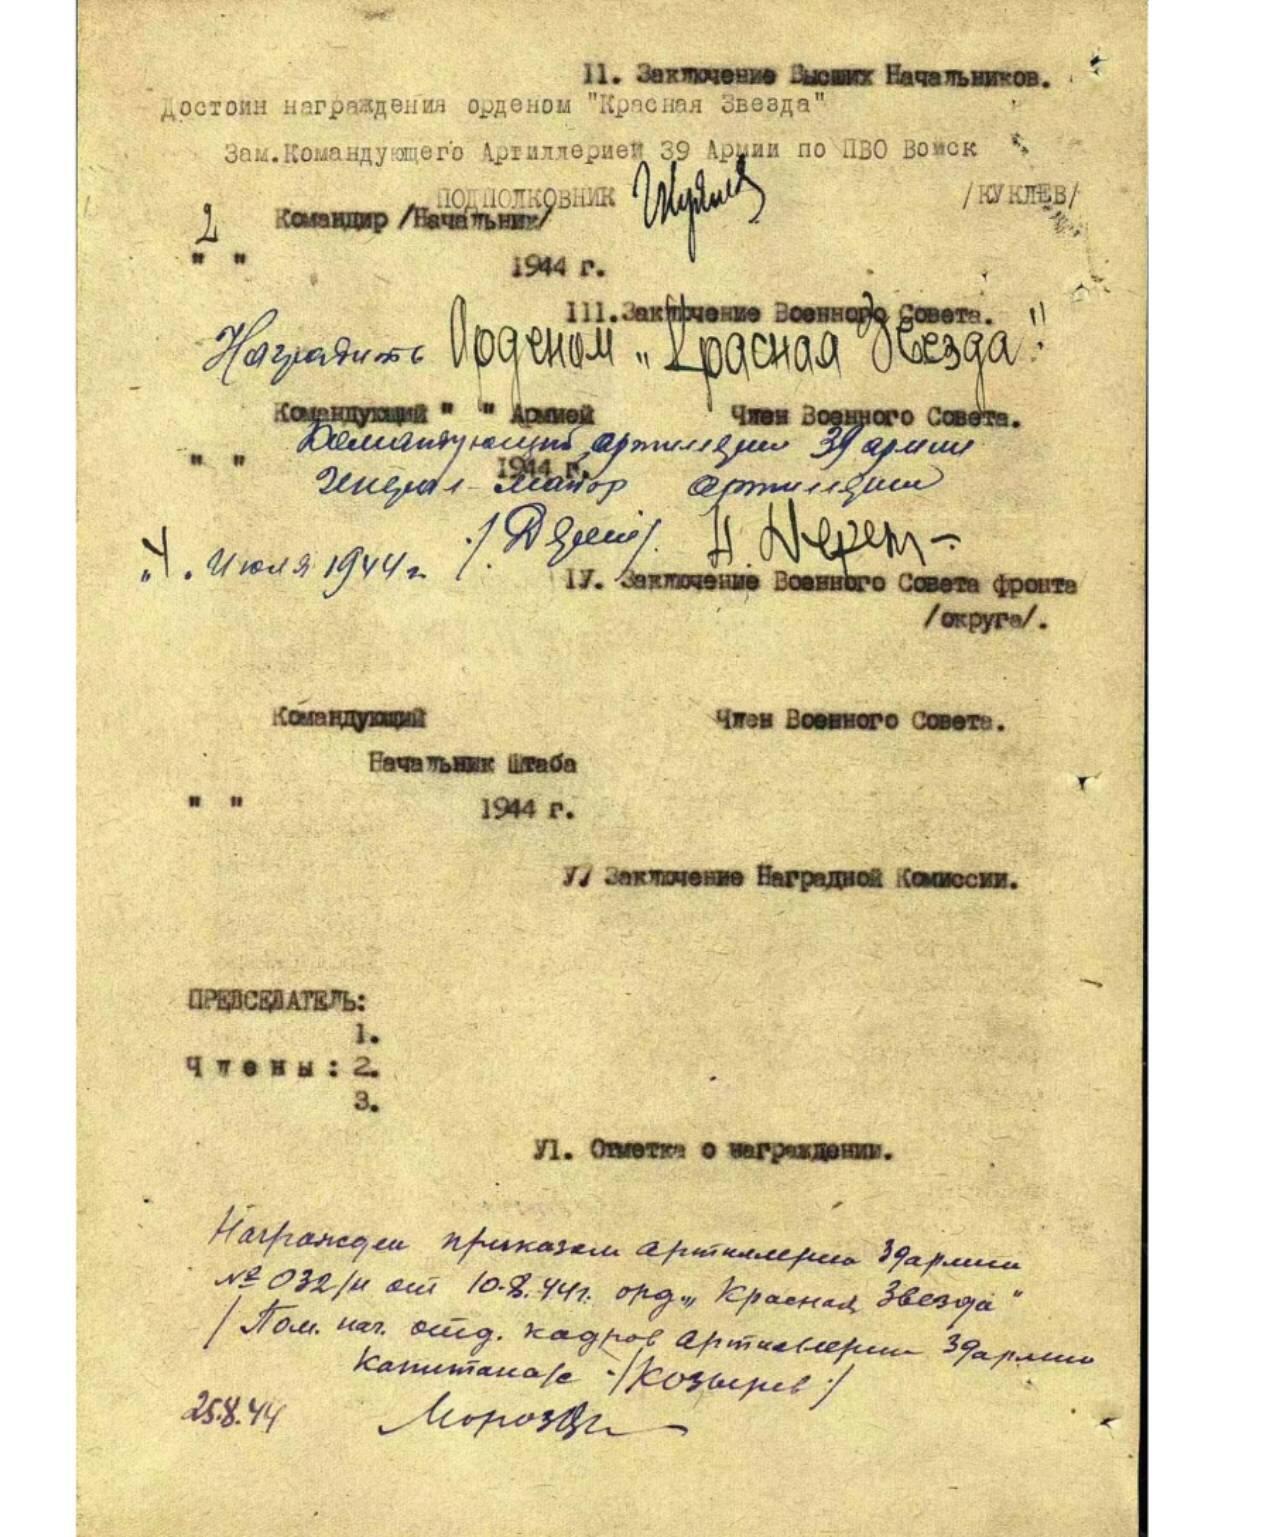 11. Заключение Высших Начальников.
Достоин награждения орденом "Красная Звезда"
Зам.Командующего Артиллерией 39 Армии по ПВО Войск
ПОДПОЛКОВНИК /КУКЛЕВ/
2 Командир /Начальник/
" " 1944 г.
111.Заключение Военного Совета.
Наградить Орденом „Красная Звезда"
Командующий " " Армией Член Военного Совета.
Командующий артилерии 39 армии
" " 1944 г.
Генерал-майор артилерии
„4. Июля 1944 г.
1У. Заключение Военного Совета фронта
/округа/.
Командующий Член Военного Совета.
Начальник Штаба
" " 1944 г.
У/ Заключение Наградной Комиссии.
ПРЕДСЕДАТЕЛЬ:
1.
Члены: 2.
3.
У1. Отметка о награждении.
Награжден приказом артиллерии 39 армии
№ 032/н от 10.8.44г. орд„ Красная Звезда"
/Пом. нач. отд. кадров артиллерии 39 армии
капитан а/с /Козырев/
25.8.44